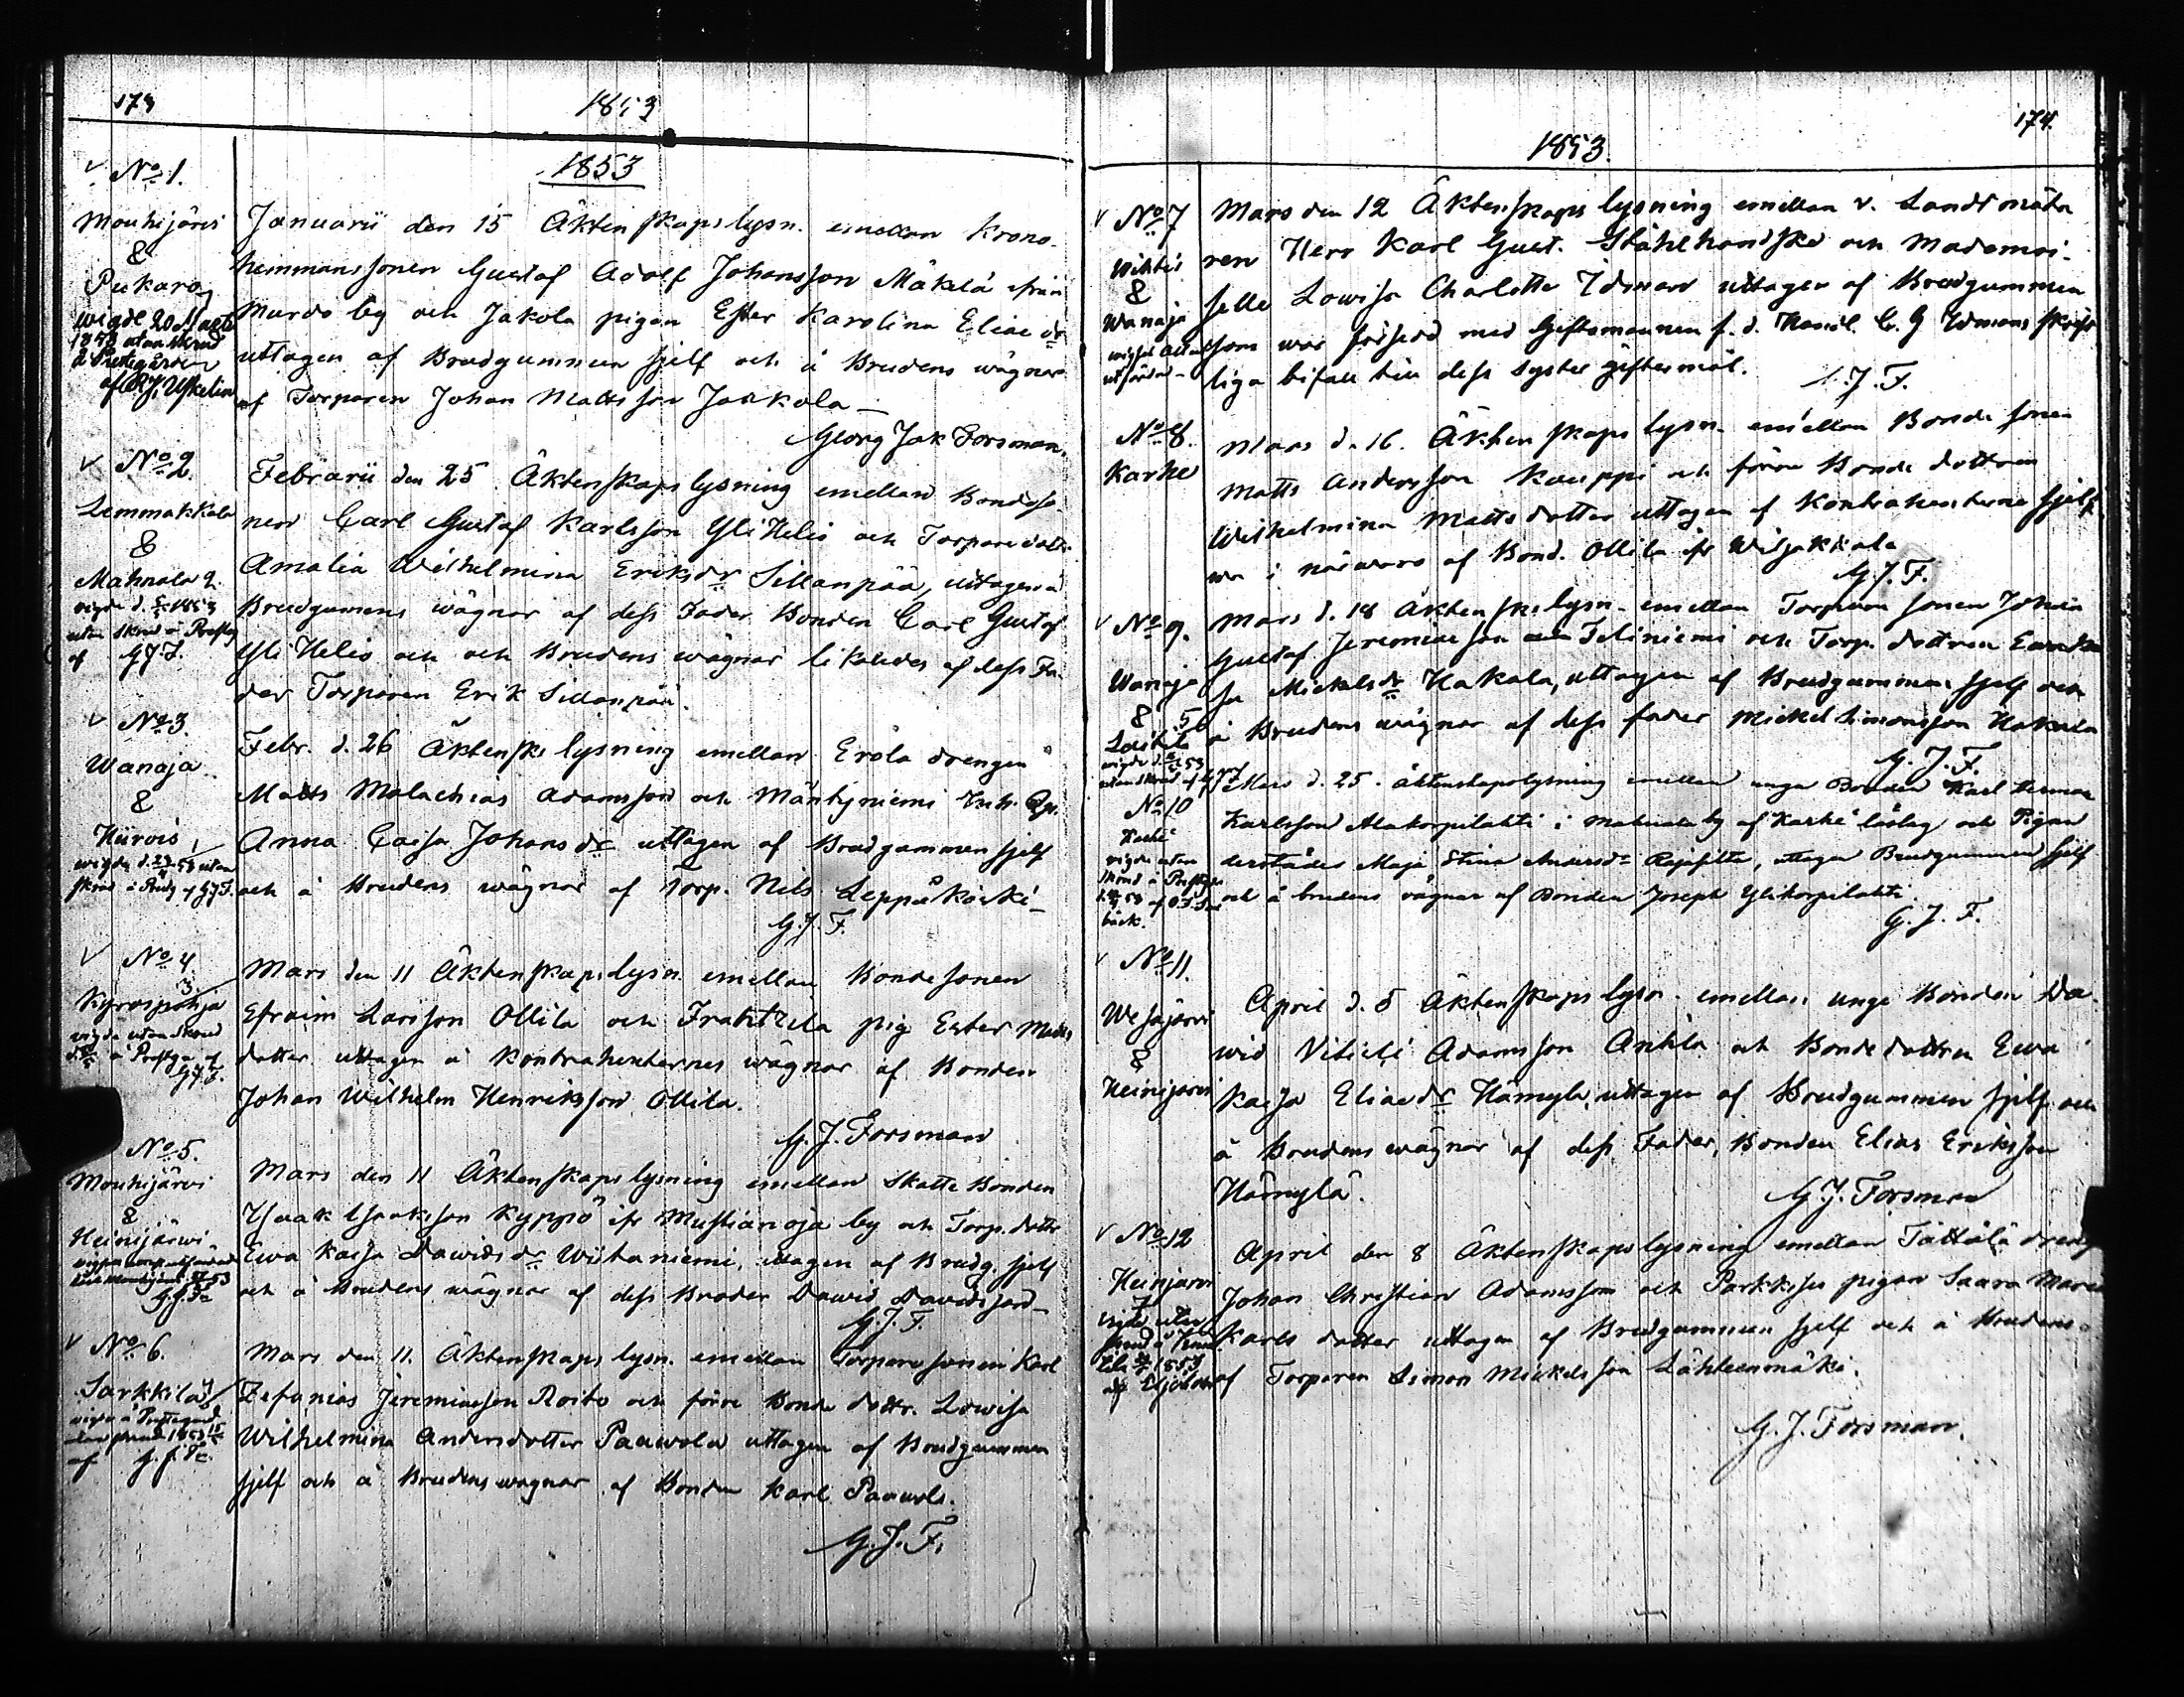 173
1853
1853
No 1.
Mouhijärvi
&
Pukara
wigde 20 Martii
1853 utan skrud
å Prestgården
af
Januarii den 15 Äktenskapslysn. emellan Krono-
hemmanssonen Gustaf Adolf Johansson Mäkelä ifrån
Murdo by och Jakola pigan Ester Karolina Eliae dr
uttagen af Brudgummen sjelf och å Brudens wägnar
af Torparen Johan Mattsson Jaakola
Georg Jak Forsman.
No 2.
Lemmakkala
&
Mahnala 2.
vigde d. 1853
utan skrud å Prestg
af G J F.
Februarii den 25 Äktenskapslysning emellan Bondeso-
nen Carl Gustaf Karlsson YliHelis och Torparedottr
Amalia Wilhelmina Eriksdr Sillanpää, uttagen å
Brudgumens wägnar af dess Fader Bonden Carl Gustaf
YliHelis och och Brudens wägnar likaledes af dess Fa-
der Torparen Erik Sillanpää.
No 3.
Wanaja
&
Hiirois
wigde d. 53 utan
skrud å Prestg af G J F.
Febr. d. 26 Äktensks lysning emellan Erola drengen
Matts Malachias Adamsson och Mäntyniemi Inh. Qp.
Anna Caisa Johansdr uttagen af Brudgummen sjelf
och å Brudens wägnar af Torp. Nils Leppäkoski
G. J. F.
No 4.
Kyrospohja 3
wigde utan skrud
å Prestga af
G J F.
Mars den 11 Äktenskapslysn. emellan Bondesonen
Efraim Larsson Ollila och Frantzila pig Ester Matts
dotter uttagen å Kontrahenternes wägnar af Bonden
Johan Wilhelm Henriksson Ollila.
G. J. Forsman
No 5.
Mouhijärvi
&
Heinijärwi
53
G. J. F.
Mars den 11 Äktenskapslysning emellan Skatte Bonden
Isaak Isaaksson Kyppö ifr Mustianoja by och Torp. dottr
Ewa Kaisa Dawidsdr Wiitaniemi, uttagen af Brudg. sjelf
och å Brudens wägnar af dess Broder Dawid Dawidsson
G. J. F.
No 6.
Sarkkila
wigde å Prestgård
utan skrud 1853
af G. J. F.
Mars den 11. Äktenskapslysn. emellan Torparesonen Karl
Zefanias Jeremiaesson Roito och förre Bonde dottr. Lowisa
Wilhelmina Andersdotter Paawola uttagen af Brudgummen
sjelf och å Brudens wägnar af Bonden Karl Paawola.
G. J. F.
174.
1853.
No 7
Wihtis
&
Wanaja
utfärdad
Mars den 12 Äktenskapslysning emellan v. Landtmäta
ren Herr Karl Gust. Stålhandske och Mademoi-
selle Lowisa Charlotta Idman uttagen af Brudgummen
som war försedd med Giftomannen f. d. Handl. C. G Idmans skrift
liga bifall till dess syster giftermål.
G. J. F.
No 8.
Karhe
Mars d. 16. Äktenskapslysn. emellan Bondesonen
Matts Andersson Kauppi och förre Bonde dottren
Wilhelmina Mattsdotter uttagen af Kontrahenterne sjelf
wa i närwaro af Bond. Ollila ifr Wiljakkala
G. J. F.
No 9.
Wanaja
& 5
wigde d. 53
utan skrud af G J F
Mars d. 18 Äktensks lysn. emellan Torparesonen Johan
Gustaf Jeremiaesson Feliniemi och Torp. dottren Ewa Ka
sa Mickelsdr Hakala, uttagen af Brudgummen sjelf och
å Brudens wägnar af dess fader Mickel Simonsson Hakala
G. J. F.
No 10
Karhe
vigde utan
skrud å Prestga
53 af
bäck.
Mars d. 25. äktenskapslysning emellan unge Bonden Karl Herman
Karlsson Alakorpilahti i Mahnala by af Karhe låslag och Pigan
derstädes Maja Stina Andersdr Rajasilta, uttagen Brudgummen sjelf
och å brudens vägnar af Bonden Joseph Ylikorpilahti.
G. J. F.
No 11.
Wesajärvi
&
Heinijärvi
April d. 5 Äktenskapslysn. emellan unge Bonden Da-
wid Vitiche Adamsson Anhla och Bondedottren Ewa
Kaisa Eliaedr Hämylä, uttagen af Brudgummen sjelf och
å Brudens wägnar af dess Fader, Bonden Elias Eriksson
Hämylä.
G. J. Forsman
No 12
Heinjärvi
7
vigde utan
skrud å
1853
af
April den 8 Äktenskapslysning emellan Tättälä dreng
Johan Christian Adamsson och Parkkisu pigan Saara Maria
Karls dotter uttagen af Brudgummen sjelf och å Brudens
af Torparen Simon Mickelsson Lähteenmäki.
G. J. Forsman.